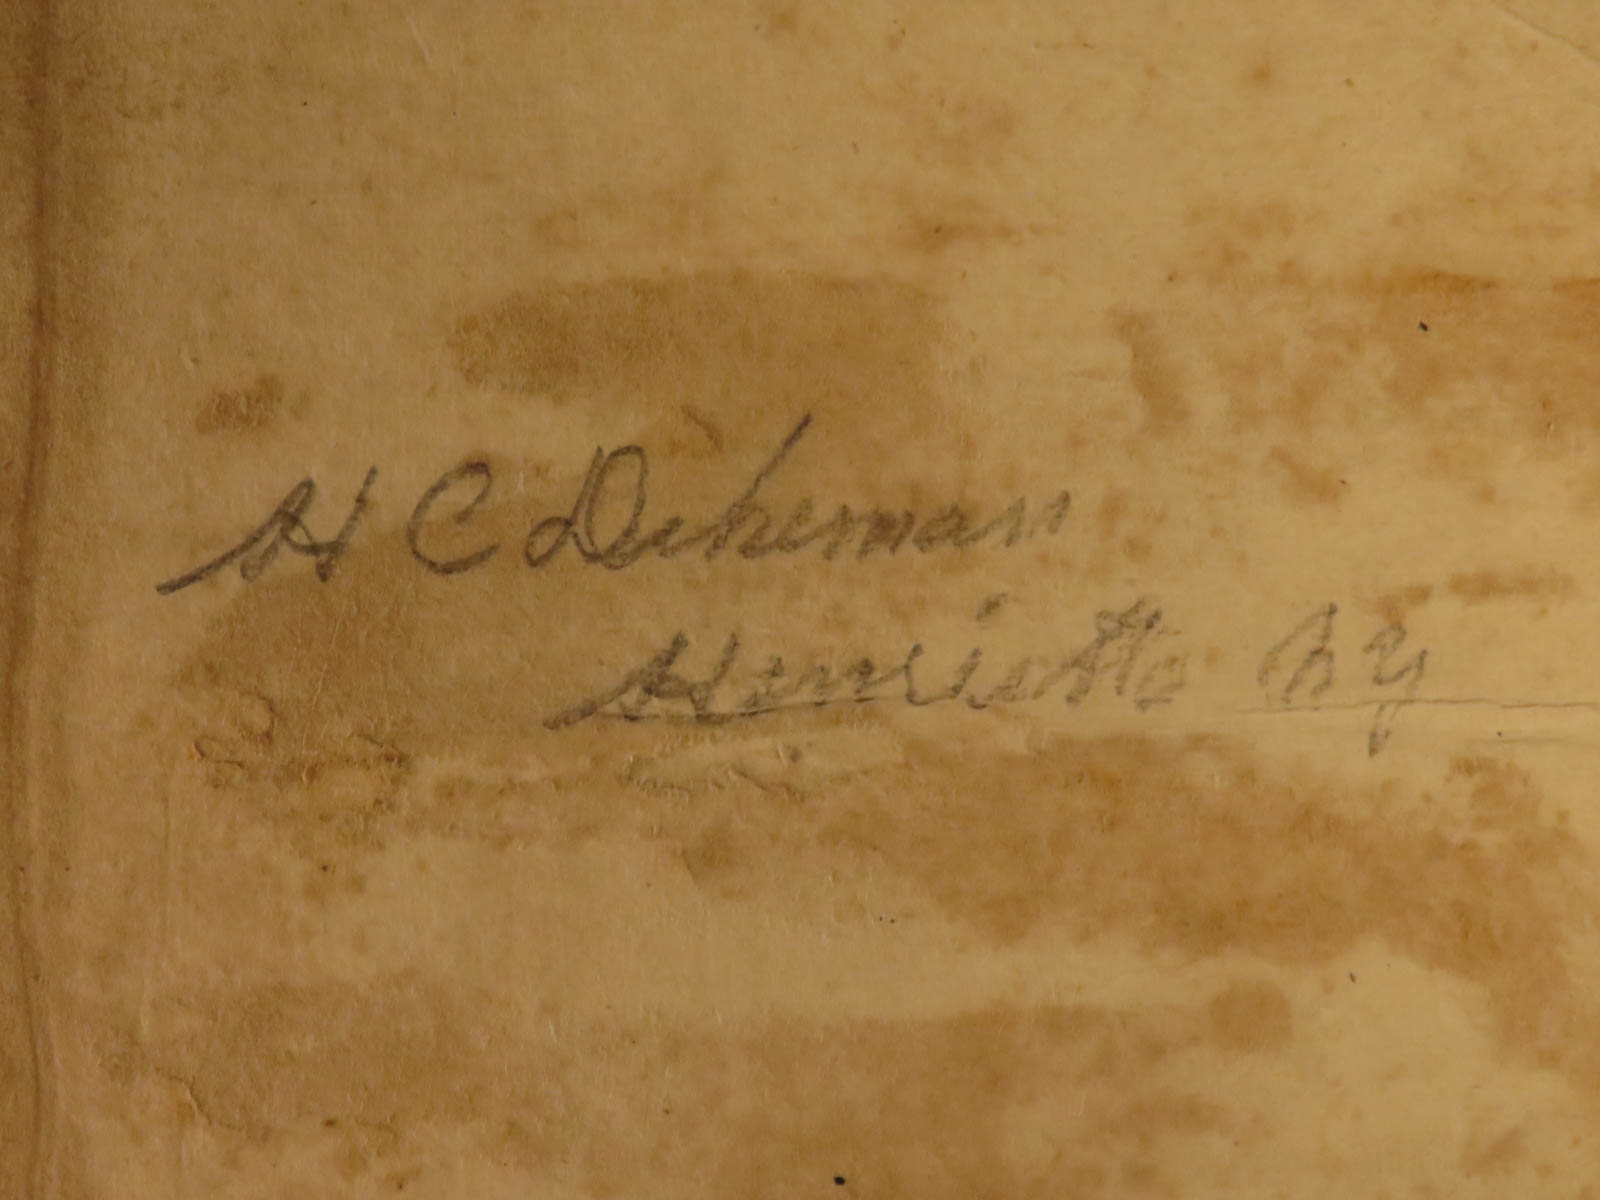 H C Dikeman
Henrietta N Y